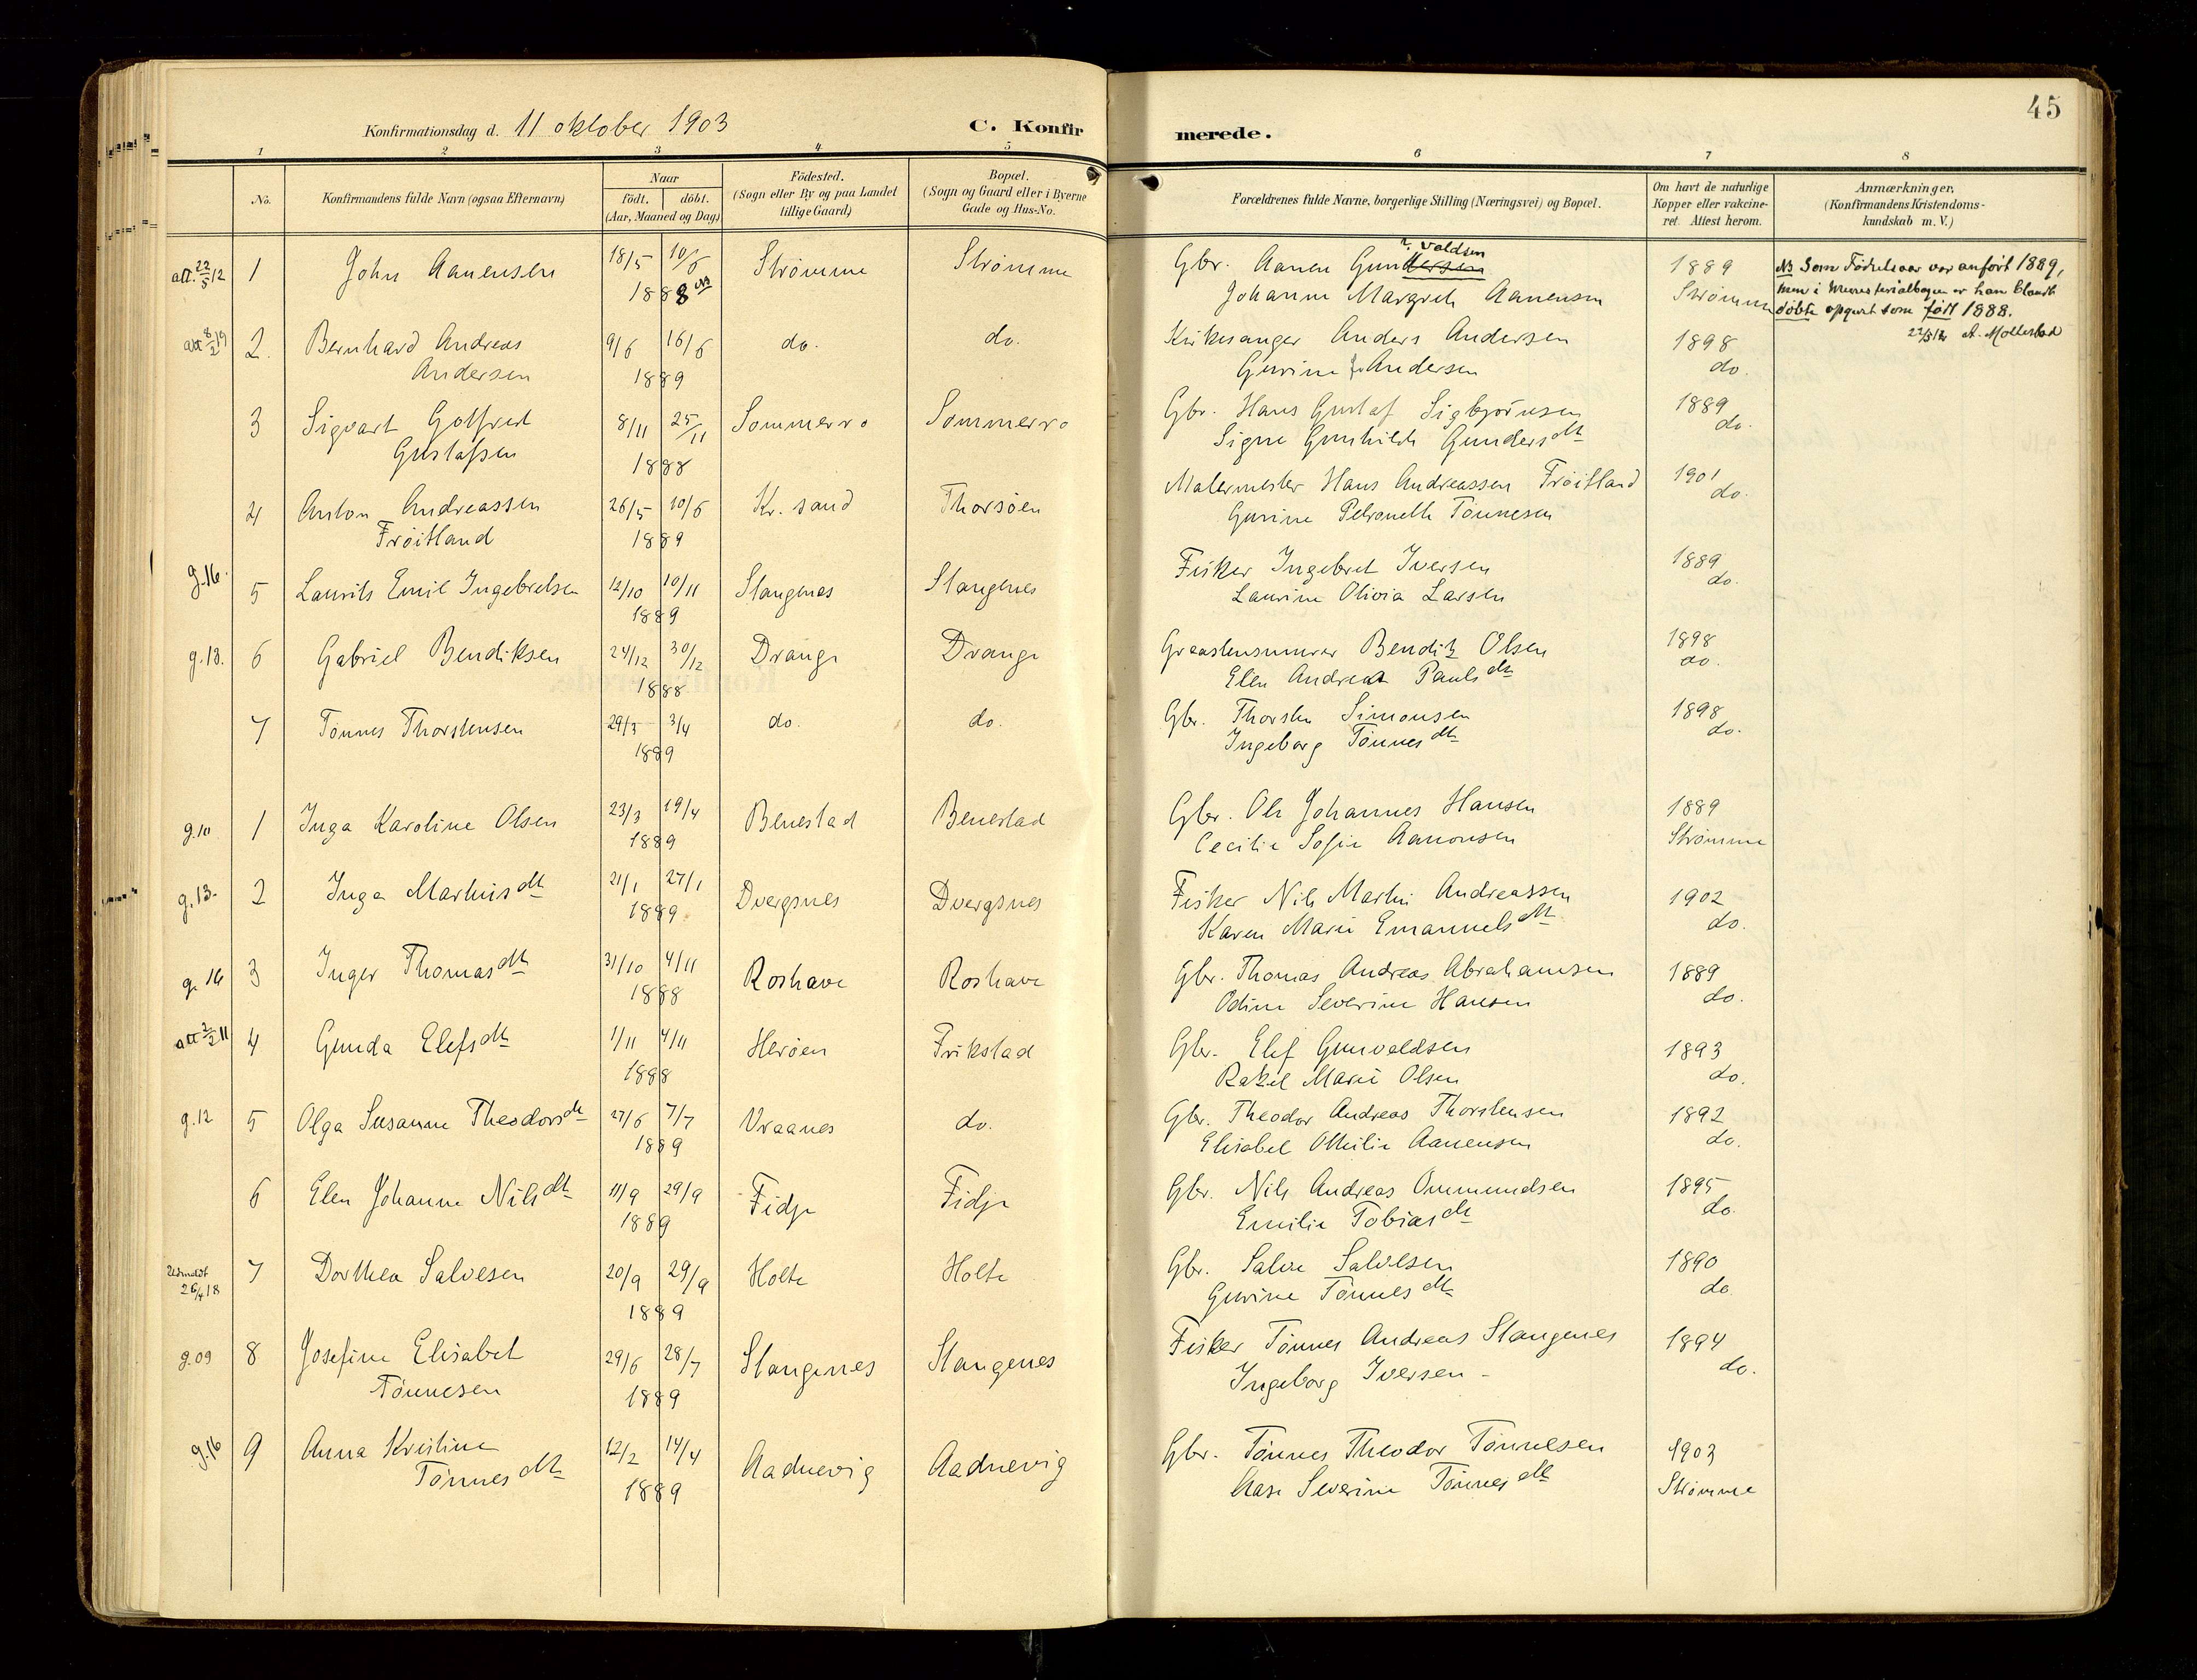 45
Konfirmationsdag d. 11 oktober 1903
C. Konfirmerede.
1 2 3 4 5 6 7 8
No.
Konfirmandens fulde Navn (ogsaa Efternavn)
Naar
födt. döbt.
(Aar, Maaned og Dag)
Födested.
(Sogn eller By og paa Landet
tillige Gaard)
Bopæl.
(Sogn og Gaard eller i Byerne
Gade og Hus-No.
Forældrenes fulde Navne, borgerlige Stilling (Næringsvei) og Bopæl.
Om havt de naturlige
Kopper eller vakcine-
ret. Attest herom.
Anmærkninger.
(Konfirmandens Kristendoms-
kundskab m. V.)
att. 22/5 12 1 John Aanensen 18/5 10/6 Strømme Strømme Gbr. Aanen Gundersen valdsen 1889
1888 NB Johanne Margrete Aanensen Strømme
NB Som Fødselsaar var anført 1889,
men i Ministerialbogen er han blandt
døbte opgivet som født 1888.
22/5 12 A. Mollestad
att 8/2 19 2. Bernhard Andreas 9/6 16/6 do. do. Kirkesanger Anders Andersen 1898
Andersen 1889 Gurine Andersen do.
3 Sigvart Gotfred 8/11 25/11 Sommerro Sommerro Gbr. Hans Gustaf Sigbjørnsen 1889
Gustafsen 1888 Signe Gunhilde Gundersdt do.
4 Anton Andreassen 26/5 10/6 Kr. sand Thorsøen Malermester Hans Andreassen Frøitland 1901
Frøitland 1889 Gurine Petronelle Tønnesen do.
g.16. 5 Laurits Emil Ingebretsen 12/10 10/11 Stangenes Stangenes Fisker Ingebret Iversen 1889
1889 Laurine Olivia Larsen do.
g.13. 6 Gabriel Bendiksen 24/12 30/12 Drange Drange Bendik Olsen 1898
1888 Elen Andrea Paulsdt do.
7 Tønnes Thorstensen 29/3 3/4 do. do. Gbr. Thorsten Simonsen 1898
1889 Ingeborg Tønnesdt do.
g.10 1 Inga Karoline Olsen 23/3 19/4 Benestad Benestad Gbr. Ole Johannes Hansen 1889
1889 Cecilie Sofie Aanonsen Strømme
g.13. 2 Inga Martinisdt 21/1 27/1 Dvergsnes Dvergsnes Fisker Nils Martin Andreassen 1902
1889 Karen Marie Emanuelsdt do.
g. 16 3 Inger Thomasdt 31/10 4/11 Roshave Roshave Gbr. Thomas Andreas Abrahamsen 1889
1888 Odine Severine Hansen do.
att 2/2 11 4 Gunda Elefsdt 1/11 4/11 Herøen Frikstad Gbr. Elef Gunvaldsen 1893
1888 Rakel Marie Olsen do.
g.12 5 Olga Susanne Theodorsdt 27/6 7/7 Vraanes do. Gbr. Theodor Andreas Thorstensen 1892
1889 Elisabet Othilie Aanensen do.
6 Elen Johanne Nilsdt 11/9 29/9 Fidje Fidje Gbr. Nils Andreas Ommundsen 1895
1889 Emilie Tobiasdt do.
Udmeldt 26/4 18 7 Dorthea Salvesen 20/9 29/9 Holte Holte Gbr. Salve Salvesen 1890
1889 Gurine Tønnesdt do.
g.09 8 Josefine Elisabet 29/6 28/7 Stangenes Stangenes Fisker Tønnes Andreas Stangenes 1894
Tønnesen 1889 Ingeborg Iversen - do.
g.16 9 Anna Kristine 12/2 14/4 Aadnevig Aadnevig Gbr. Tønnes Theodor Tønnesen 1903
Tønnesdt 1889 Aase Severine Tønnesdt Strømme